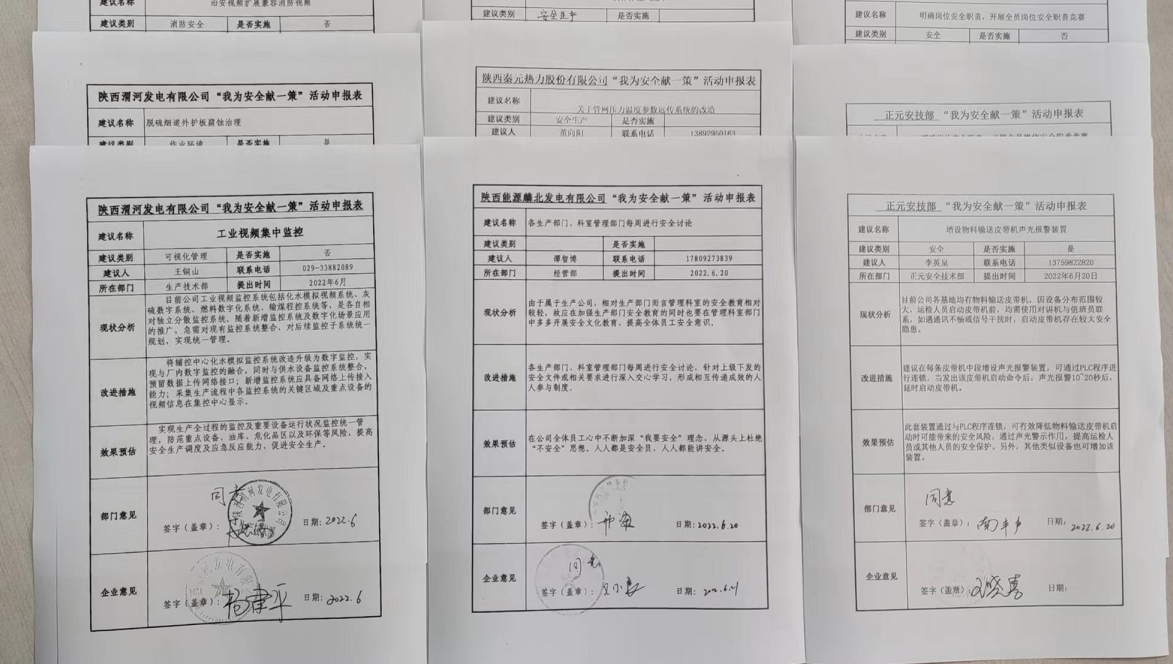 治安视频扩展兼容消防视频
建议类别 消防安全 是否实施 否
建议类别 安全生产 是否实施
建议名称 明确岗位安全职责，开展全员岗位安全职责竞赛
建议类别 安全 是否实施 否
陕西渭河发电有限公司“我为安全献一策”活动申报表
建议名称 脱硫烟道外护板腐蚀治理
建议类别 作业环境 是否实施 是
陕西秦元热力股份有限公司“我为安全献一策”活动申报表
建议名称 关于管网压力温度参数远传系统的改造
建议类别 安全生产 是否实施
建议人 董向阳 联系电话 13892950163
正元安技部 “我为安全献一策”活动申报表
陕西渭河发电有限公司“我为安全献一策”活动申报表
建议名称 工业视频集中监控
建议类别 可视化管理 是否实施 否
建议人 王铜山 联系电话 029-33882089
所在部门 生产技术部 提出时间 2022年6月
现状分析
目前公司工业视频监控系统包括化水模拟视频系统、灰
硫数字系统、燃料数字化系统、输煤程控系统等，是各自相
对独立分散监控系统，随着新增监控系统及数字化场景应用
的推广，急需对现有监控系统整合，对后续监控子系统统一
规划，实现统一管理。
改进措施
将辅控中心化水模拟监控系统改造升级为数字监控，实
现与厂内数字监控的融合，同时与供水设备监控系统整合，
预留数据上传网络接口；新增监控系统应具备网络上传接入
能力；采集生产流程中各监控系统的关键区域及重点设备的
视频信息在集控中心显示。
效果预估
实现生产全过程的监控及重要设备运行状况监控统一管
理，防范重点设备、油库、危化品区以及环保等风险，提高
安全生产调度及应急反应能力，促进安全生产。
部门意见 同意
签字（盖章）： 日期：2022.6
企业意见
签字（盖章）： 杨建平 日期：2022.6
陕西能源麟北发电有限公司“我为安全献一策”活动申报表
建议名称 各生产部门、科室管理部门每周进行安全讨论
建议类别 是否实施
建议人 谭智博 联系电话 17809273839
所在部门 经营部 提出时间 2022.6.20
现状分析
由于属于生产公司，相对生产部门而言管理科室的安全教育相对
较轻，故应在加强生产部门安全教育的同时也要在管理科室部门
中多多开展安全文化教育，提高全体员工安全意识。
改进措施
各生产部门、科室管理部门每周进行安全讨论，针对上级下发的
安全文件或相关要求进行深入交心学习，形成相互传递成效的人
人参与制度。
效果预估
在公司全体员工心中不断加深“我要安全”理念，从源头上杜绝
“不安全”思想，人人都是安全员，人人都能讲安全。
部门意见
签字（盖章）： 日期：2022.6.20
企业意见 同意
签字（盖章）： 日期：2022.6.21
正元安技部 “我为安全献一策”活动申报表
建议名称 增设物料输送皮带机声光报警装置
建议类别 安全 是否实施 是
建议人 李英泉 联系电话 13759822820
所在部门 正元安全技术部 提出时间 2022年6月20日
现状分析
目前公司各基地均有物料输送皮带机，因设备分布范围较
大，运检人员启动皮带机前，均需使用对讲机与值班员联
系，如遇通讯不畅或信号干扰时，启动皮带机存在较大安全
隐患。
改进措施
建议在每条皮带机中段增设声光报警装置，可通过PLC程序进
行连锁，当发出该皮带机启动命令后，声光报警10~20秒后，
延时启动皮带机。
效果预估
此套装置通过与PLC程序连锁，可有效降低物料输送皮带机启
动时可能带来的安全风险，通过声光警示作用，提高运检人
员或其他人员的安全保护。另外，其他类似设备也可增加该
装置。
部门意见 同意
签字（盖章）： 日期： 2022.6.20
企业意见
签字（盖章） 日期：